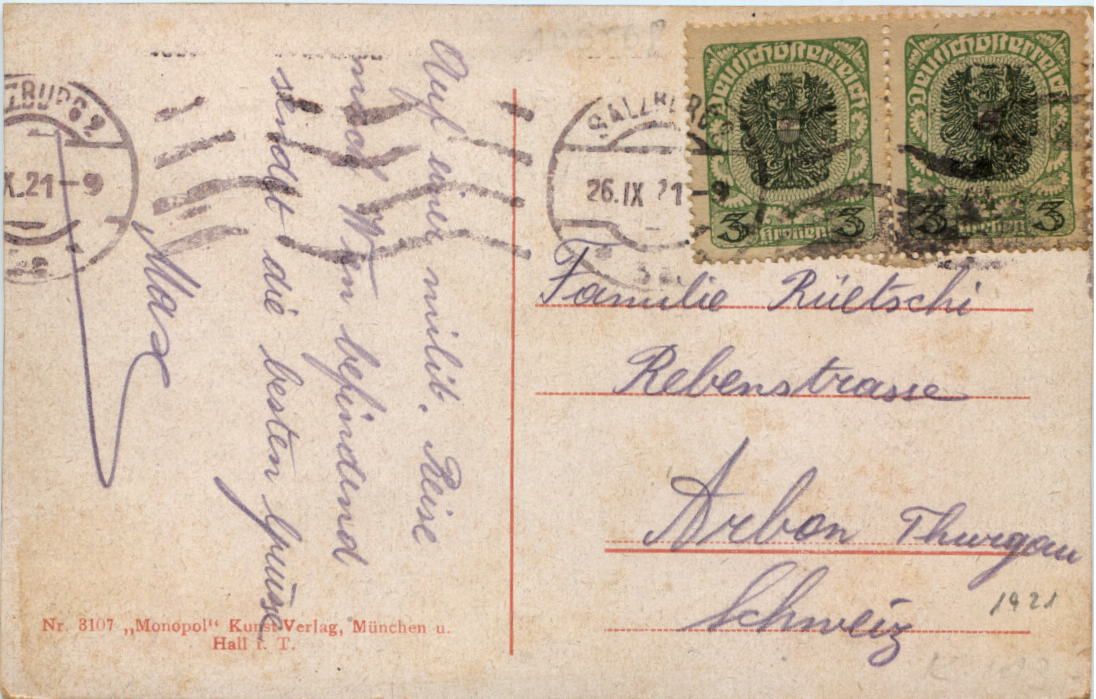 Auf einer milit. Reise
nach Wien befindend
sendet die besten Grüsse
Max
SALZBURG 2
X.21-9
SALZBURG
26.IX 21-9
Deutschösterreich
3 Kronen 3
Deutschösterreich
3 Kronen 3
Familie Rüetschi
Rebenstrasse
Arbon Thurgau
Schweiz
1921
Nr. 3107 „Monopol“ Kunst-Verlag, München u.
Hall i. T.